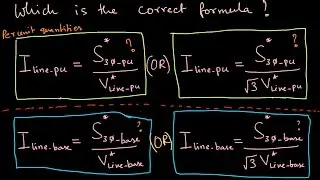 Which is the correct formula?
Per unit quantities
I line-pu = S*3φ-pu / V*Line-pu ? (OR) I line-pu = S*3φ-pu / √3 V*Line-pu ?
I line-base = S*3φ-base / V*Line-base ? (OR) I line-base = S*3φ-base / √3 V*Line-base ?